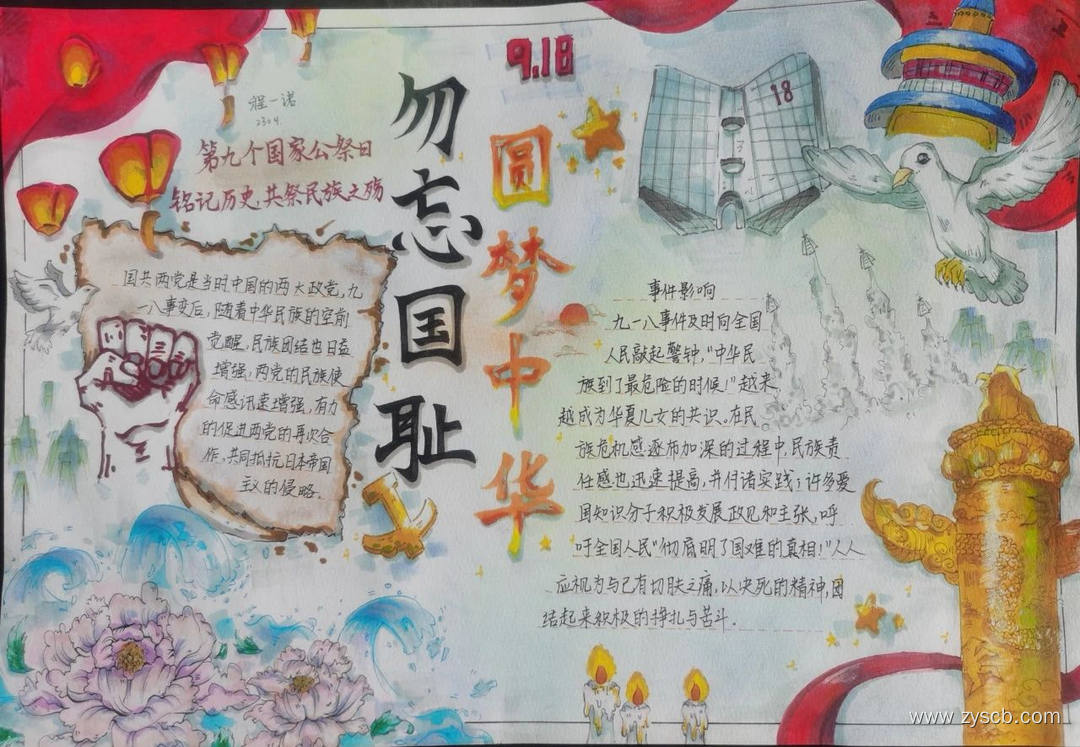 9.18
程一诺
2304
第九个国家公祭日
铭记历史,共祭民族之殇
勿忘国耻
圆梦中华
18
国共两党是当时中国的两大政党,九
一八事变后,随着中华民族的空前
觉醒,民族团结也日益
增强,两党的民族使
命感迅速增强,有力
的促进两党的再次合
作,共同抵抗日本帝国
主义的侵略.
事件影响
九一八事件及时向全国
人民敲起警钟,"中华民
族到了最危险的时候!"越来
越成为华夏儿女的共识。在民
族危机感逐布加深的过程中,民族责
任感也迅速提高,并付诸实践;许多爱
国知识分子积极发展政见和主张,呼
吁全国人民"彻底明了国难的真相!"人人
应视为与己有切肤之痛,以决死的精神,团
结起来积极的挣扎与苦斗.
www.zyscb.com